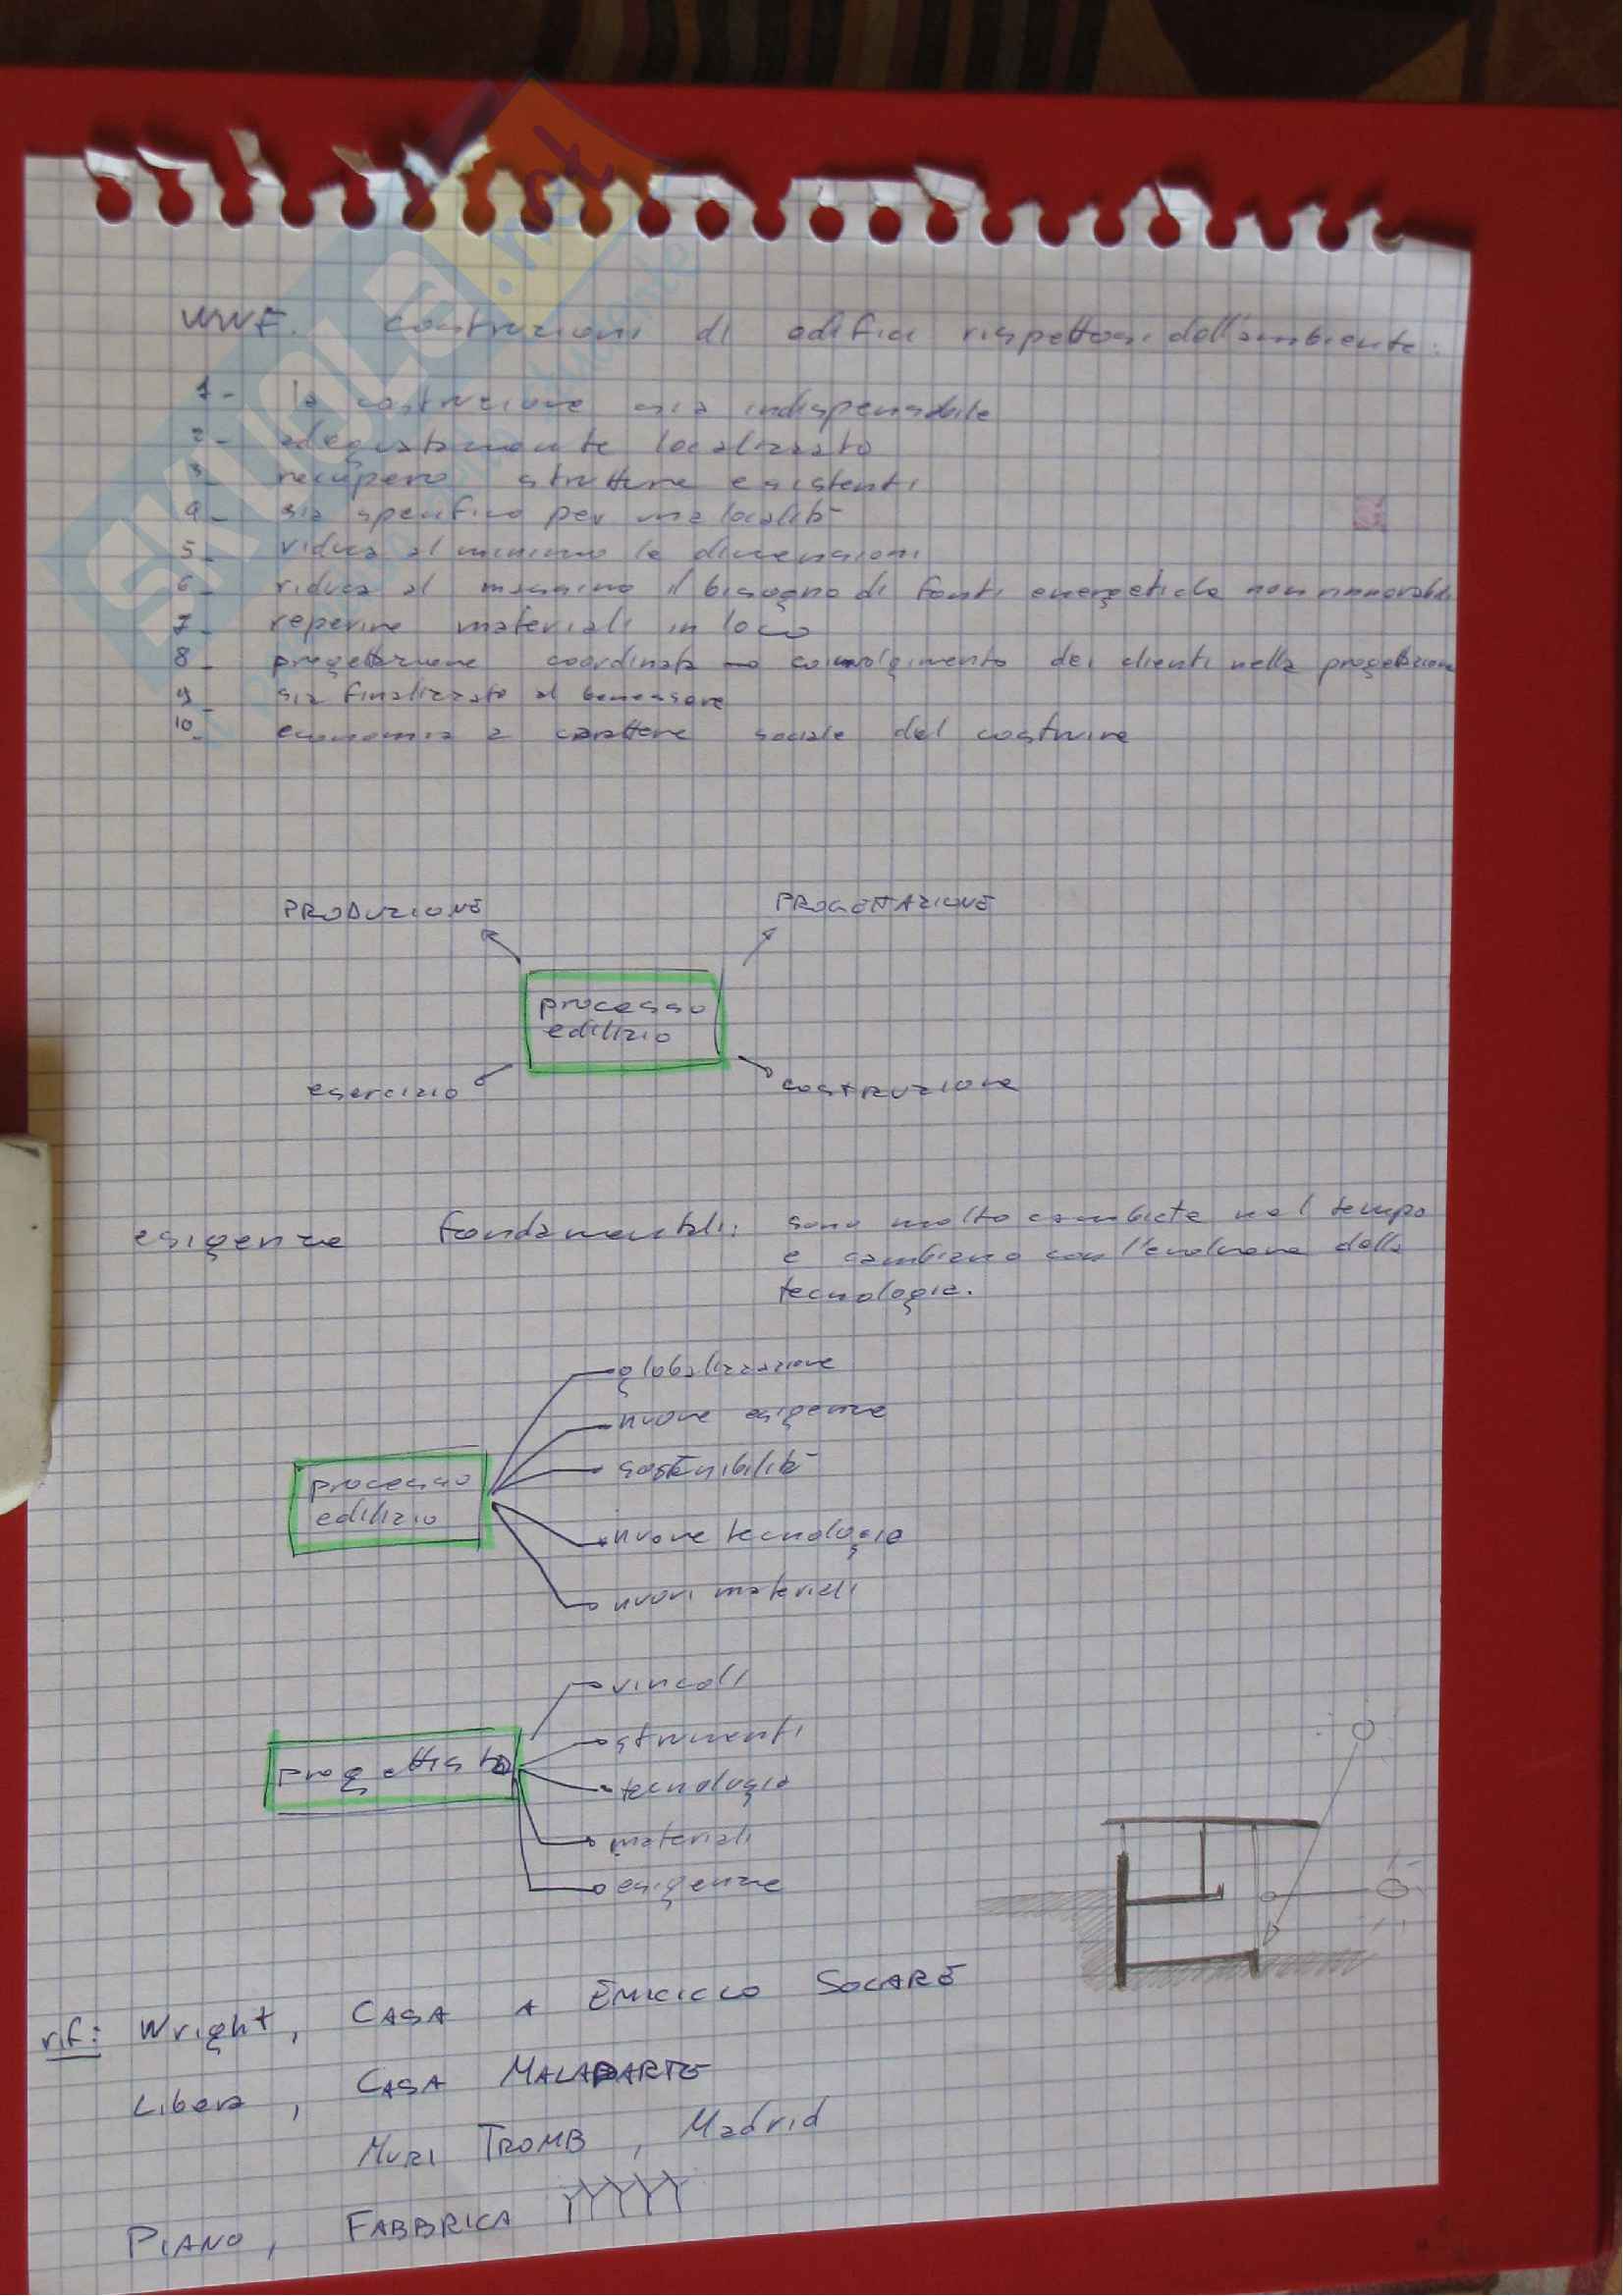 SKUOLA.net
WWF. costruzioni di edifici rispettosi dell'ambiente:
1- la costruzione sia indispensabile
2- adeguatamente localizzato
3- recupero strutture esistenti
4- sia specifico per una località
5- riduca al minimo le dimensioni
6- riduca al massimo il bisogno di fonti energetiche non rinnovabili
7- reperire materiali in loco
8- progettazione coordinata → coinvolgimento dei clienti nella progettazione
9- sia finalizzato al benessere
10- economia a carattere sociale del costruire
PRODUZIONE PROGETTAZIONE
processo
edilizio
esercizio costruzione
esigenze fondamentali: sono molto cambiate nel tempo
e cambiano con l'evoluzione della
tecnologia.
globalizzazione
nuove esigenze
sostenibilità
processo
edilizio
nuove tecnologie
nuovi materiali
vincoli
strumenti
progettista
tecnologia
materiali
esigenze
rif: Wright, CASA A EMICICLO SOLARE
Libera, CASA MALAPARTE
MURI TROMB, Madrid
PIANO, FABBRICA